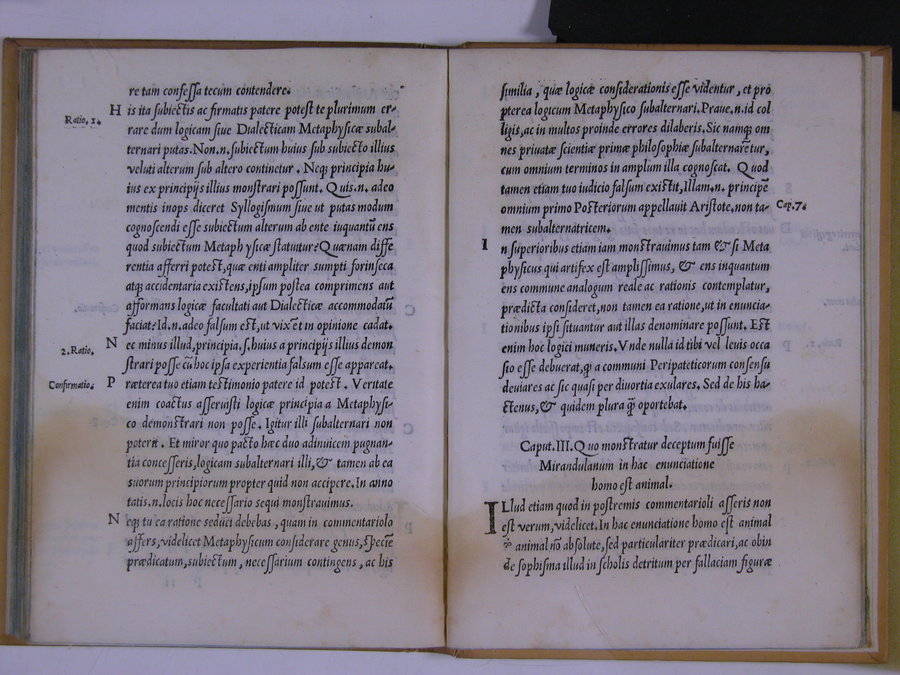 re tam confessa tecum contendere.
Ratio. 1.
His ita subiectis ac firmatis patere potest te plurimum er-
rare dum logicam siue Dialecticam Metaphysicæ subal-
ternari putas. Non.n. subiectum huius sub subiecto illius
veluti alterum sub altero continetur. Neq; principia hu-
ius ex principijs illius monstrari possunt. Quis.n. adeo
mentis inops diceret Syllogismum siue ut putas modum
cognoscendi esse subiectum alterum ab ente inquantũ ens
quod subiectum Metaphysicæ statuitur? Quænam diffe
rentia afferri potest, quæ enti ampliter sumpti forinseca
atq; accidentaria existens, ipsum postea comprimens aut
afformans logicæ facultati aut Dialecticæ accommodatũ
faciat? Id.n. adeo falsum est, ut vix et in opinione cadat.
2. Ratio.
Nec minus illud, principia.s. huius a principijs illius demon
strari posse cũ hoc ipsa experientia falsum esse appareat.
Confirmatio.
Præterea tuo etiam testimonio patere id potest. Veritate
enim coactus asseruisti logicæ principia a Metaphysi-
co demonstrari non posse. Igitur illi subalternari non
poterit. Et miror quo pacto hæc duo adinuicem pugnan-
tia concesseris, logicam subalternari illi, & tamen ab ea
suorum principiorum propter quid non accipere. In anno
tatis.n. locis hoc necessario sequi monstrauimus.
Neq; tu ea ratione seduci debebas, quam in commentariolo
affers, videlicet Metaphysicum considerare genus, speciẽ
prædicatum, subiectum, necessarium contingens, ac his
similia, quæ logicæ considerationis esse videntur, et pro
pterea logicum Metaphysico subalternari. Praue.n. id col
ligis, ac in multos proinde errores dilaberis. Sic namq; om
nes priuatæ scientiæ primæ philosophiæ subalternarẽtur,
cum omnium terminos in amplum illa cognoscat. Quod
tamen etiam tuo iudicio falsum existit, Illam.n. principẽ
omnium primo Posteriorum appellauit Aristote. non ta-
Cap. 7.
men subalternãtricem.
In superioribus etiam iam monstrauimus tam & si Meta
physicus qui artifex est amplissimus, & ens inquantum
ens commune analogum reale ac rationis contemplatur,
prædicta consideret, non tamen ea ratione, ut in enuncia-
tionibus ipsi situantur aut illas denominare possunt. Est
enim hoc logici muneris. Vnde nulla id tibi vel leuis occa
sio esse debuerat, ꝙ a communi Peripateticorum consensu
deuiares ac sic quasi per diuortia exulares. Sed de his ha-
ctenus, & quidem plura q̃ oportebat.
Caput. III. Quo monstratur deceptum fuisse
Mirandulanum in hac enunciatione
homo est animal.
ILlud etiam quod in postremis commentarioli asseris non
est verum, videlicet. In hac enunciatione homo est animal
animal nõ absolute, sed particulariter prædicari, ac obin
de sophisma illud in scholis detritum per fallaciam figuræ